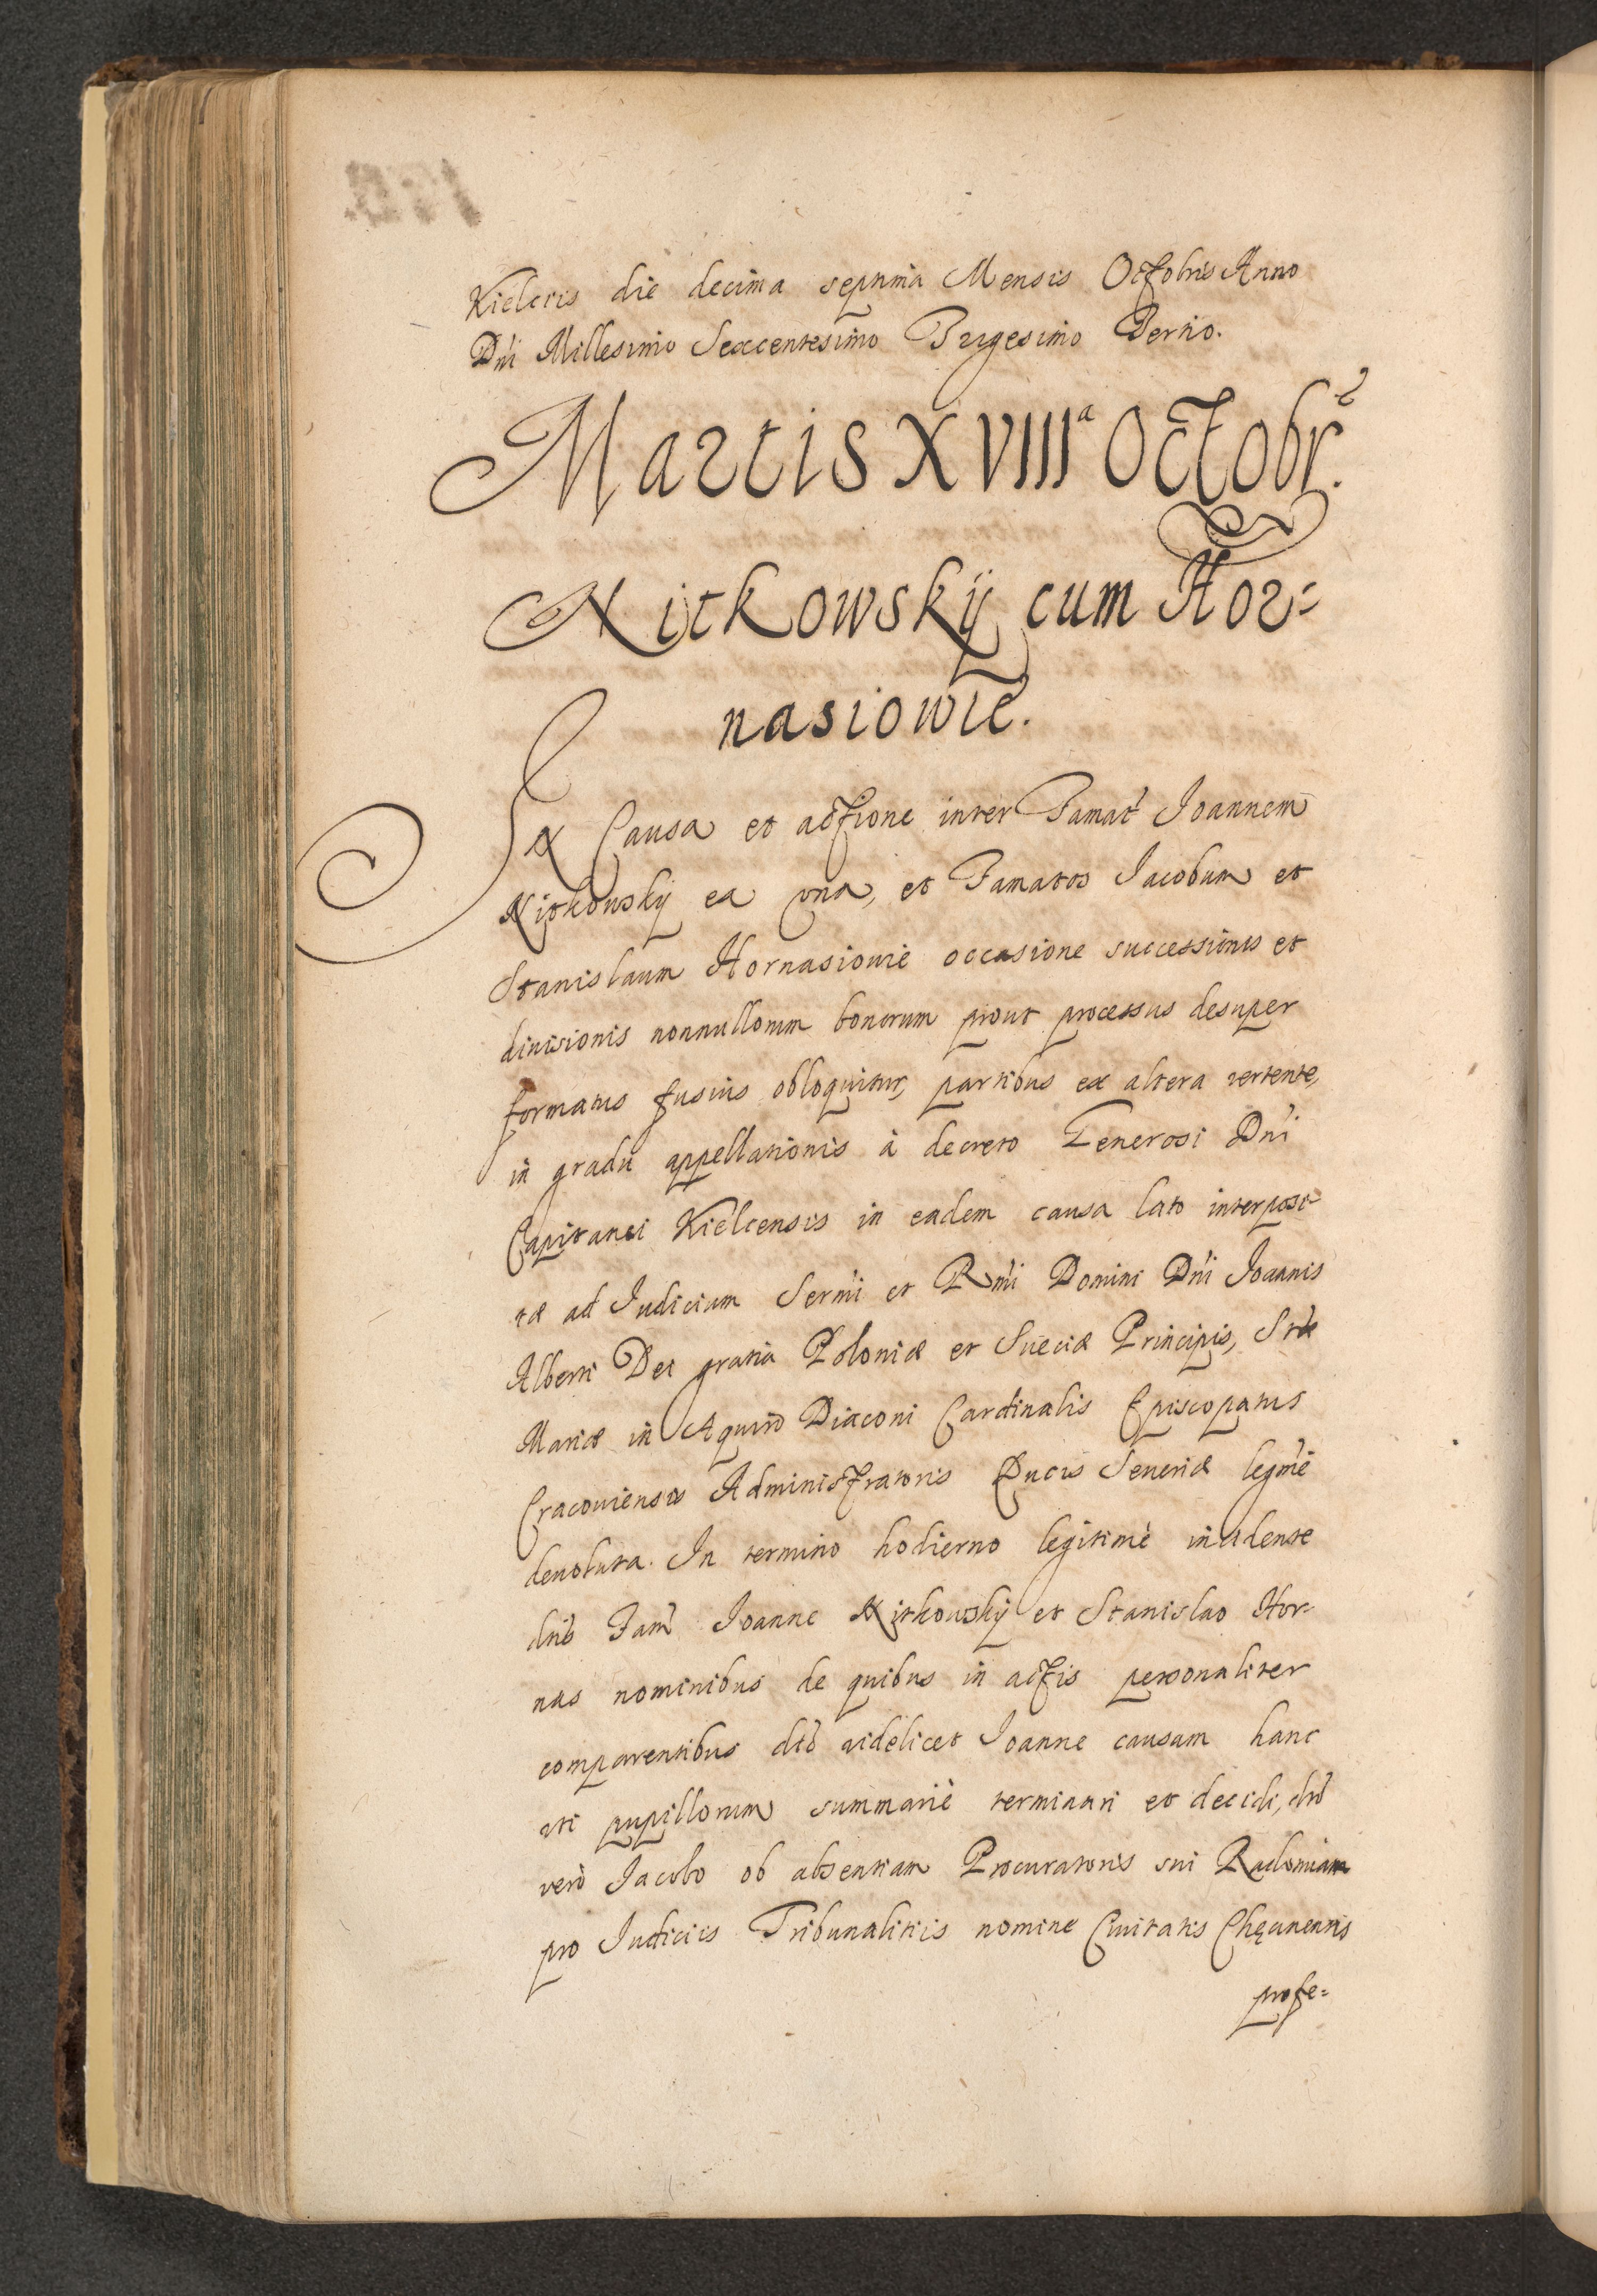 Kielciis die decima septima Mensis Octobris Anno
Dni Millesimo Sexcentesimo Trigesimo Tertio.
Martis XVIIIª Octobr.
Nitkowskÿ cum Hor=
nasiowie.
Ex Causa et actione inter Famat Joannem
Nitkowskÿ ex una, et Famatos Jacobum et
Stanislaum Hornasiowie occasione successionis et
diuisionis nonnullorum bonorum prout processus desuper
formatus fusius obloquitur, partibus ex altera vertente,
in gradu appellationis à decreto Generosi Dni
Capitanei Kielcensis in eadem causa lato interposi-
tæ ad Judicium Sermi et Rmi Domini Dni Joannis
Alberti Dei gratia Poloniæ et Sueciæ Principis, Stæ
Mariæ in Aquiro Diaconi Cardinalis Episcopatus
Cracouiensis Administratoris Ducis Seueriæ legme
deuoluta. In termino hodierno legitimè incidente
dnis Fam Joanne Nitkowskÿ et Stanislao Hor-
nas nominibus de quibus in actis personaliter
comparentibus dto videlicet Joanne causam hanc
uti pupillorum summariè terminari et decidi, dto
verò Jacobo ob absentiam Procuratoris sui Radomiam
pro Judiciis Tribunalitiis nomine Ciuitatis Chęcinensis
profe=